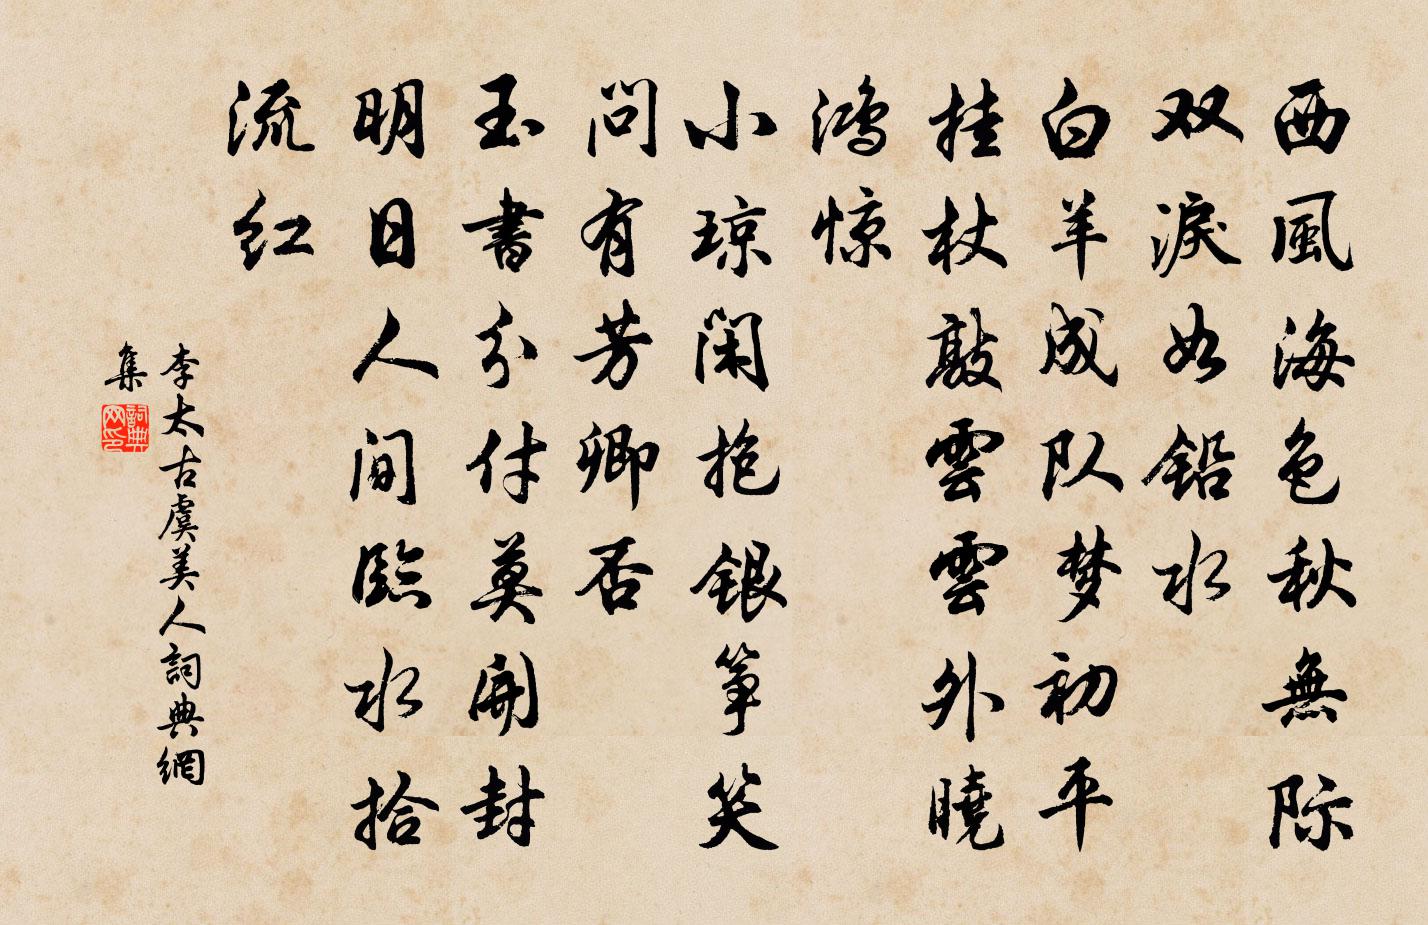 西風海色秋無际
双淚如铅水
白羊成队梦初平
挂杖敲雲雲外曉
鸿惊
小琼闲抱银筝笑
問有芳卿否
玉書分付莫開封
明日人间臨水拾
流红
李太古虞美人詞典網
集
詞典
网印